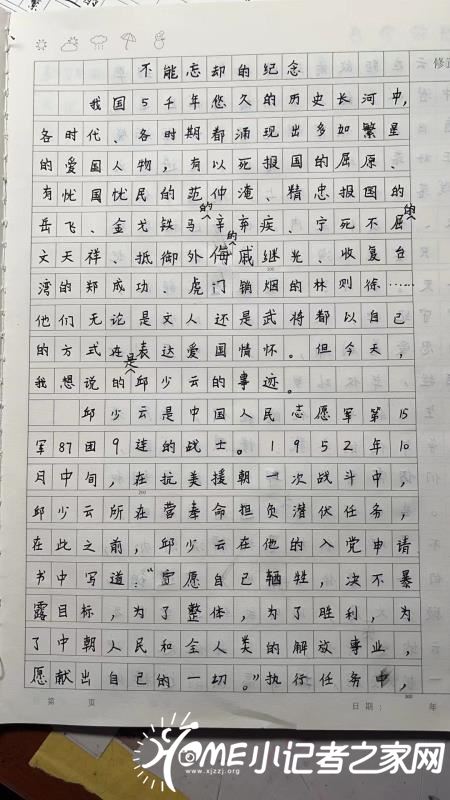 不能忘却的纪念
我国5千年悠久的历史长河中,
各时代、各时期都涌现出多如繁星
的爱国人物,有以死报国的屈原、
有忧国忧民的范仲淹、精忠报国的
岳飞、金戈铁马的辛弃疾、宁死不屈的
文天祥、抵御外侮的戚继光、收复台
湾的郑成功、虎门销烟的林则徐……
他们无论是文人还是武将都以自己
的方式在表达爱国情怀。但今天,
我想说的是邱少云的事迹。
邱少云是中国人民志愿军第15
军87团9连的战士。1952年10
月中旬,在抗美援朝一次战斗中,
邱少云所在营奉命担负潜伏任务,
在此之前,邱少云在他的入党申请
书中写道:“宁愿自己牺牲,决不暴
露目标,为了整体,为了胜利,为
了中朝人民和全人类的解放事业,
愿献出自己的一切。”执行任务中,
第 页
日期: 年
200
300
HOME小记者之家网
www.xjzzj.org